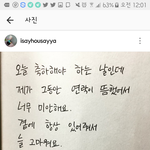 오전 12:01
사진
isayhousayya
오늘 축하해야 하는 날인데
제가 그동안 연락이 뜸했어서
너무 미안해요.
곁에 항상 있어줘서
늘 고마워요.